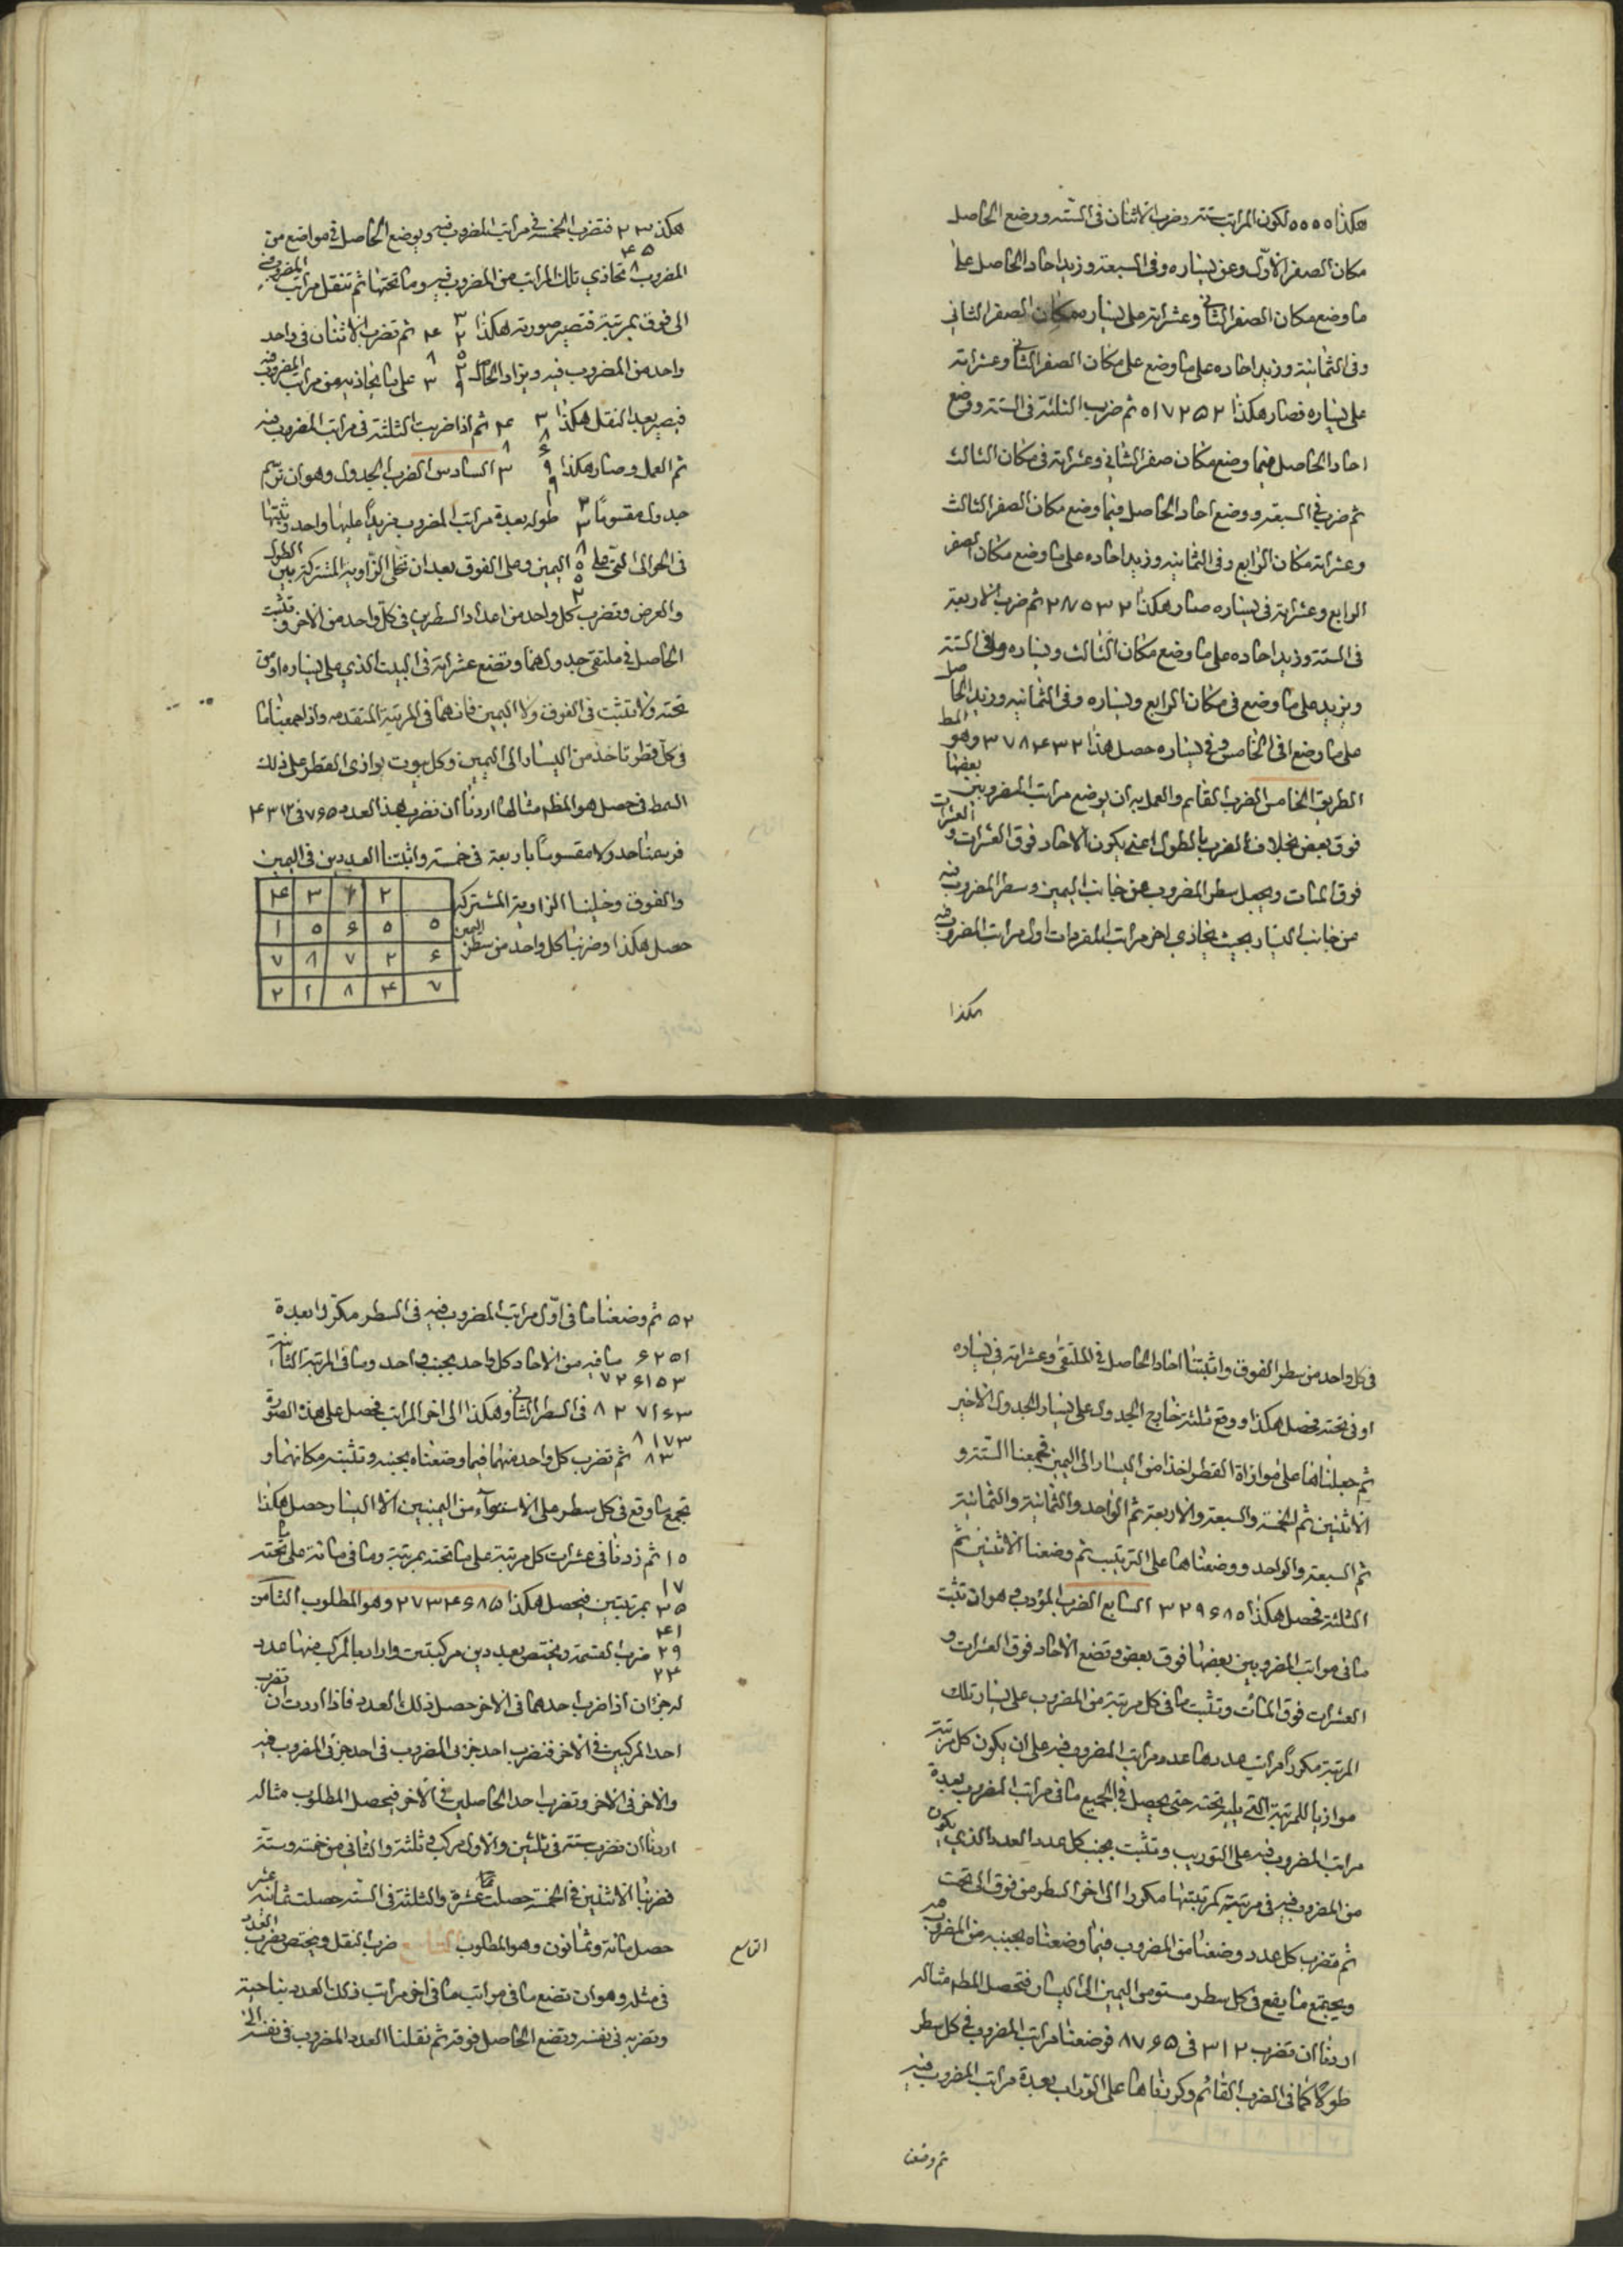 هكذا ٥٥٥٥ لكون المراتب ستة وضرب الاثنان فى الستة ووضع الحاصل
مكان الصفر الاول وعن يساره وفى السبعة وزيد احاد الحاصل على
ما وضع مكان الصفر الثانى وعشراته على يساره مكان الصفر الثانى
وفى الثمانية وزيد احاده على ما وضع على مكان الصفر الثانى وعشراته
على يساره فصار هكذا ٥١٧٢٥٢ ثم ضرب الثلثة فى الستة ووضع
احاد الحاصل فيما وضع مكان صفر الثانى وعشراته فى مكان الثالث
ثم ضرب فى السبعة ووضع احاد الحاصل فيما وضع مكان الصفر الثالث
وعشراته مكان الرابع وفى الثمانية وزيد احاده على ما وضع مكان الصفر
الرابع وعشراته فى يساره صار هكذا ٢٨٥٣٢ ثم ضرب الاربعة
فى الستة وزيد احاده على ما وضع مكان الثالث ويساره وفى الستة
ويزيد على ما وضع فى مكان الرابع ويساره وفى الثمانية وزيد الحاصل
على ما وضع فى الخامس وفى يساره حصل هذا ٣٧٨٤٣٢ وهو المط
الطريق الخامس الضرب القائم والعمل به ان يوضع مراتب المضروبين بعضها
فوق بعض بخلاف الضرب بالطول اعنى يكون الاحاد فوق العشرات والعشرات
فوق المئات ويجعل سطر المضروب من جانب اليمين وسطر المضروب فيه
من جانب اليسار بحيث يحاذى اخر مراتب المفردات اول مراتب المضروب فيه
هكذا
هكذ ٢٣ فتضرب الخمسة فى مراتب المضروب فيه ويوضع الحاصل فى مواضع من
٤٥
٨
المضروب تحاذى تلك المراتب من المضروب فيه وما تحتها ثم تنقل مراتب المضروب فيه
الى فوق بمرتبة فتصير صورته هكذا ٣ ٢٤ ثم تضرب الاثنان فى واحد
واحد من المضروب فيه ويزاد الحاصل ٣ على ما يحاذيه من مراتب المضروب فيه
فيصير بعد النقل هكذا ٣ ٢٤ ثم اذا ضربت الثلثة فى مراتب المضروب فيه
تم العمل وصار هكذا ٩ ٣ السادس الضرب الجدول وهو ان ترسم
جدول مقسوما ٣ طوله بعدة مراتب المضروب مزيدا عليها واحد وتثبتها
فى الحوالى التى على اليمين وعلى الفوق بعد ان تخلى الزاوية المشتركة بين الطول
والعرض وتضرب كل واحد من اعداد السطرين فى كل واحد من الاخر وتثبت
الحاصل فى ملتقى جدولهما وتضع عشراته فى البيت الذي على يساره او من
تحته ولا تثبت فى الفوق ولا اليمين فانهما فى المرتبة المتقدمه واذا جمعت ما
فى كل قطر تاخذ من اليسار الى اليمين وكل بيوت توازى القطر على ذلك
النمط فى حصل هو المط مثالها اردنا ان نضرب هذا العدد ٧٦٥ فى ٤٣١٢
فرسمنا جدولا مقسوما باربعة فى خمسة واثبتنا العددين فى اليمين
والفوق وخلينا الزاوية المشتركة
حصل هكذا وضربنا كل واحد من سطر اليمين
٤ ٣ ١ ٢
١ ٥ ٦ ٥ ٥
٧ ٨ ٧ ٢ ٦
٢ ١ ٨ ٤ ٧
فى كل واحد من سطر الفوق واثبتنا احاد الحاصل فى الملتقى وعشراته فى يساره
او فى تحته يحصل هكذا ووقع ثلثة خارج الجدول على يسار الجدول الاخير
ثم جعلناها على موازاة القطر اخذا من اليسار الى اليمين فجمعنا الستة و
الاثنين ثم الخمسة والسبعة والاربعة ثم الواحد والثمانية والثمانية
ثم السبعة والواحد ووضعناها على الترتيب ثم وضعنا الاثنين ثم
الثلثة فحصل هكذا ٣٢٩٦٨٥ السابع الضرب المؤرب وهو ان تثبت
ما فى مراتب المضروبين بعضها فوق بعض وتضع الاحاد فوق العشرات و
العشرات فوق المئات وتثبت ما فى كل مرتبة من المضروب على يسار تلك
المرتبة مكررا مرات عددها عدد مراتب المضروب فيه على ان يكون كل مرتبة
موازيا للمرتبة التى يليه تحته حتى يحصل فى الجميع ما فى مراتب المضروب بعدة
مراتب المضروب فيه على التوريب وتثبت بجنب كل عدد العدد الذي يكون
من المضروب فيه فى مرتبته كمرتبتها مكررا الى اخر السطر من فوق الى تحت
ثم تضرب كل عدد وضعنا من المضروب فيما وضعناه بجنبه من المضروب فيه
ويجتمع ما يقع فى كل سطر مستو من اليمين الى اليسار فتحصل المط مثاله
اردنا ان نضرب ٣١٢ فى ٨٧٦٥ فوضعنا مراتب المضروب فى كل سطر
طولا كما فى الضرب القائم وكررناها على التوراب بعدة مراتب المضروب فيه
ثم وضعنا
٥٢ ثم وضعنا ما فى اول مراتب المضروب فيه فى السطر مكررا بعدة
٦٢٥١ ما فيه من الاحاد كل واحد بجنب واحد وما فى المرتبة الثانية
٧٢٦١٥٣
٨٢٧١٦٣ فى السطر الثانى وهكذا الى اخر المراتب فحصل على هذه الصورة
٨١٧٣
٨٣ ثم تضرب كل واحد منهما فيما وضعناه بجنبه وتثبته مكانهما و
تجمع ما وقع فى كل سطر على الاستواء من اليمنيين الى اليسار حصل هكذا
١٥ ثم زدنا فى عشرات كل مرتبة على ما تحته بمرتبة وما فى مائة على ما تحته
١٧
٣٥ بمرتبتين فيحصل هكذا ٢٧٣٤٦٨٥ وهو المطلوب الثامن
٤١
٢٩ ضرب القسمة ويختص بعددين مركبتين واراد بالمركب منها عدد
٢٤
له جزءان اذا ضرب احدهما فى الاخر حصل ذلك العدد فاذا اردت ان تضرب
احد المركبين فى الاخر فتضرب احد جزئى المضروب فى احد جزئى المضروب فيه
والاخر فى الاخر وتضرب احد الحاصلين فى الاخر فيحصل المطلوب مثاله
اردنا ان نضرب ستة فى ثلثين والاول مركب من ثلثة والثانى من خمسة وستة
فضربنا الاثنين فى الخمسة حصلت عشرة والثلثة فى الستة حصلت ثمانية عشر
حصل مائة وثمانون وهو المطلوب ضرب النقل ويختص بضرب العدد
التاسع
فى مثله وهو ان تضع ما فى مراتب ما فى اخر مراتب ذلك العدد بناحية
وتضربه فى نفسه وتضع الحاصل فوقه ثم نقلنا العدد المضروب فى نفسه الى